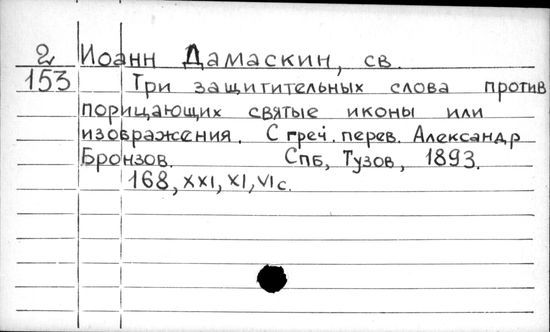 2 Иоанн Дамаскин, св.
153 Три защитительных слова против
порицающих святые иконы или
изображения. С греч. перев. Александр
Бронзов. Спб, Тузов, 1893.
168, XXI, XI, VI с.